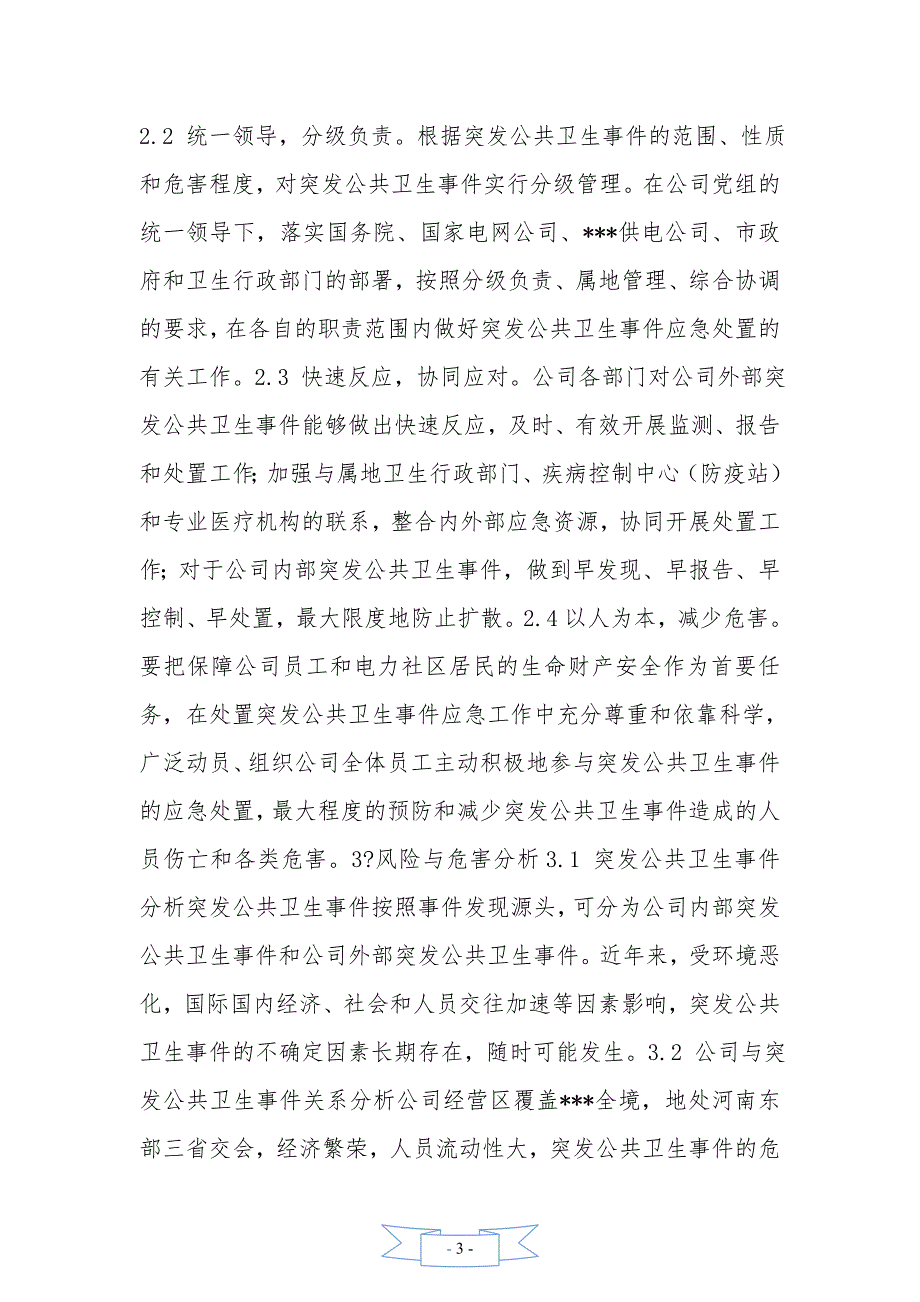 2.2 统一领导，分级负责。根据突发公共卫生事件的范围、性质
和危害程度，对突发公共卫生事件实行分级管理。在公司党组的
统一领导下，落实国务院、国家电网公司、***供电公司、市政
府和卫生行政部门的部署，按照分级负责、属地管理、综合协调
的要求，在各自的职责范围内做好突发公共卫生事件应急处置的
有关工作。2.3 快速反应，协同应对。公司各部门对公司外部突
发公共卫生事件能够做出快速反应，及时、有效开展监测、报告
和处置工作；加强与属地卫生行政部门、疾病控制中心（防疫站）
和专业医疗机构的联系，整合内外部应急资源，协同开展处置工
作；对于公司内部突发公共卫生事件，做到早发现、早报告、早
控制、早处置，最大限度地防止扩散。2.4 以人为本，减少危害。
要把保障公司员工和电力社区居民的生命财产安全作为首要任
务，在处置突发公共卫生事件应急工作中充分尊重和依靠科学，
广泛动员、组织公司全体员工主动积极地参与突发公共卫生事件
的应急处置，最大程度的预防和减少突发公共卫生事件造成的人
员伤亡和各类危害。3?风险与危害分析 3.1 突发公共卫生事件
分析突发公共卫生事件按照事件发现源头，可分为公司内部突发
公共卫生事件和公司外部突发公共卫生事件。近年来，受环境恶
化，国际国内经济、社会和人员交往加速等因素影响，突发公共
卫生事件的不确定因素长期存在，随时可能发生。3.2 公司与突
发公共卫生事件关系分析公司经营区覆盖***全境，地处河南东
部三省交会，经济繁荣，人员流动性大，突发公共卫生事件的危
- 3 -